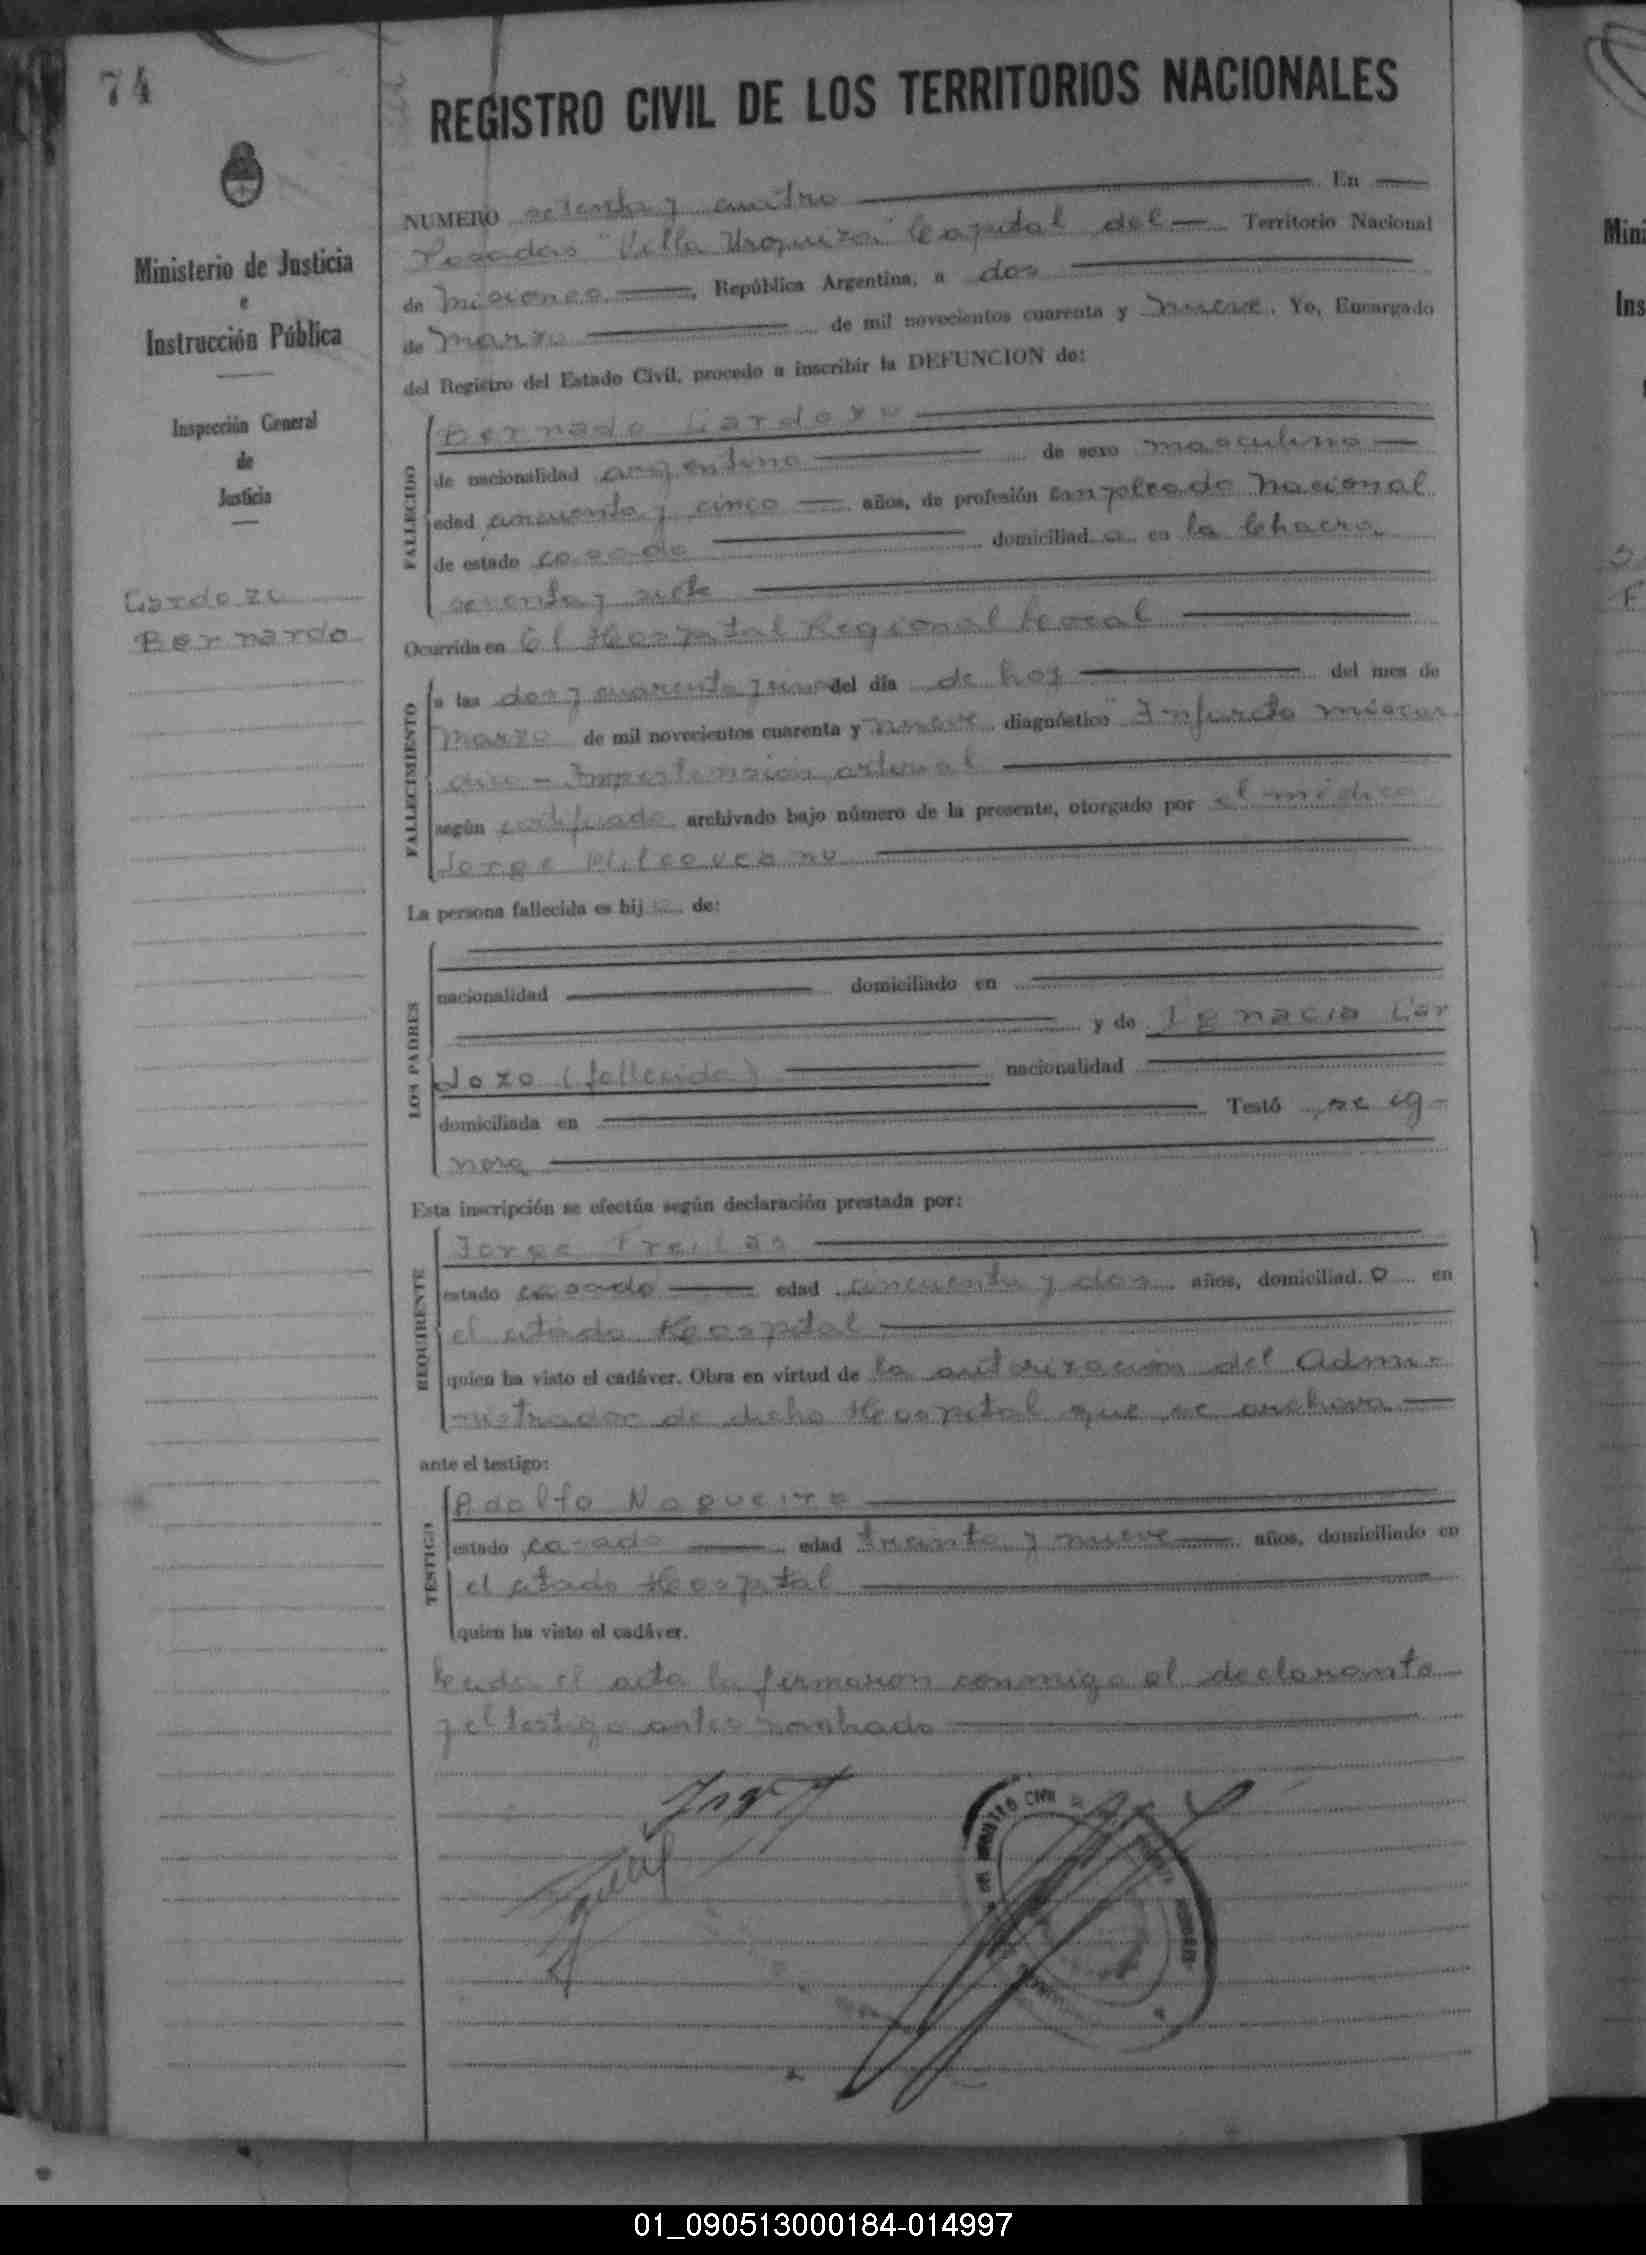 74
REGISTRO CIVIL DE LOS TERRITORIOS NACIONALES
Ministerio de Justicia
e
Instrucción Pública
Inspección General
de
Justicia
Cardozo
Bernardo
NUMERO setenta y cuatro En
Posadas "Villa Urquiza" Capital del Territorio Nacional
de Misiones, República Argentina, a dos
de Marzo de mil novecientos cuarenta y nueve. Yo, Encargado
del Registro del Estado Civil, procedo a inscribir la DEFUNCION de:
FALLECIDO
Bernado Cardozo
de nacionalidad argentino de sexo masculino
edad cincuenta y cinco años, de profesión empleado nacional
de estado casado domiciliad o en la Chacra
sesenta y siete
Ocurrida en El Hospital Regional local
FALLECIMIENTO
a las dos y cuarenta y del día de hoy del mes de
Marzo de mil novecientos cuarenta y nueve diagnóstico "Infarto miocar
dio - Impertensión arterial
según certificado archivado bajo número de la presente, otorgado por el médico
Jorge
La persona fallecida es hij o de:
LOS PADRES
nacionalidad domiciliado en
y de Ignacia Car
dozo (fallecida) nacionalidad
domiciliada en Testó se ig-
nora
Esta inscripción se efectúa según declaración prestada por:
REQUIRENTE
Jorge Freitas
estado casado edad cincuenta y dos años, domiciliad o en
el citado Hospital
quien ha visto el cadáver. Obra en virtud de la autorización del Admi-
nistrador de dicho Hospital que se archiva
ante el testigo:
TESTIGO
Adolfo Nogueira
estado casado edad treinta y nueve años, domiciliado en
el citado Hospital
quien ha visto el cadáver.
Leida el acta la firmaron conmigo el declarante
y el testigo antes nombrado
01_090513000184-014997